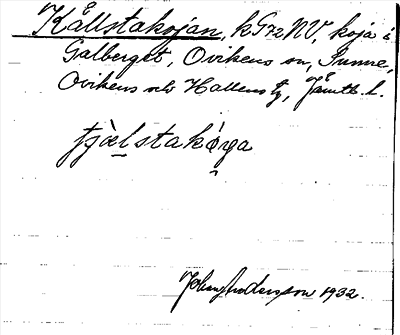 Kållstakojan, k572NV, koja i
Galberget, Ovikens sn, Sunne,
Ovikens och Hallens tg, Jämtl. l.
tjὰlstakɷ́ya
John Andersson 1932.